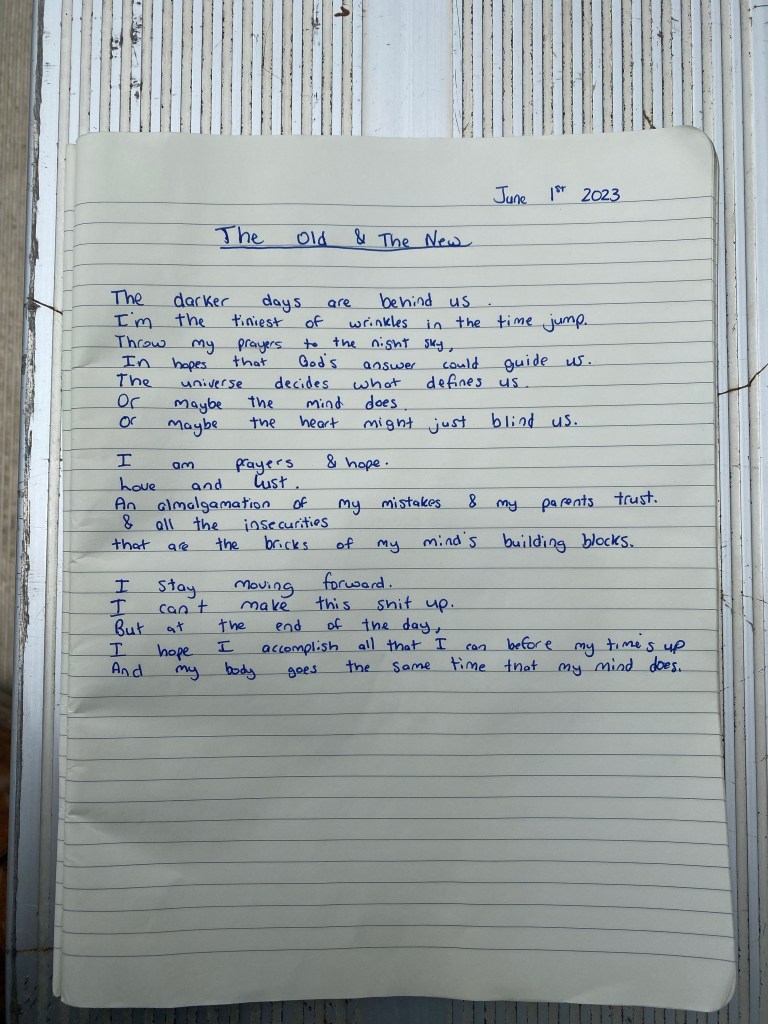 June 1st 2023
The Old & The New
The darker days are behind us.
I'm the tiniest of wrinkles in the time jump.
Throw my prayers to the night sky,
In hopes that God's answer could guide us.
The universe decides what defines us.
Or maybe the mind does.
Or maybe the heart might just blind us.
I am prayers & hope.
Love and Lust.
An almalgamation of my mistakes & my parents trust.
& all the insecurities
that are the bricks of my mind's building blocks.
I stay moving forward.
I can't make this shit up.
But at the end of the day,
I hope I accomplish all that I can before my time's up
And my body goes the same time that my mind does.